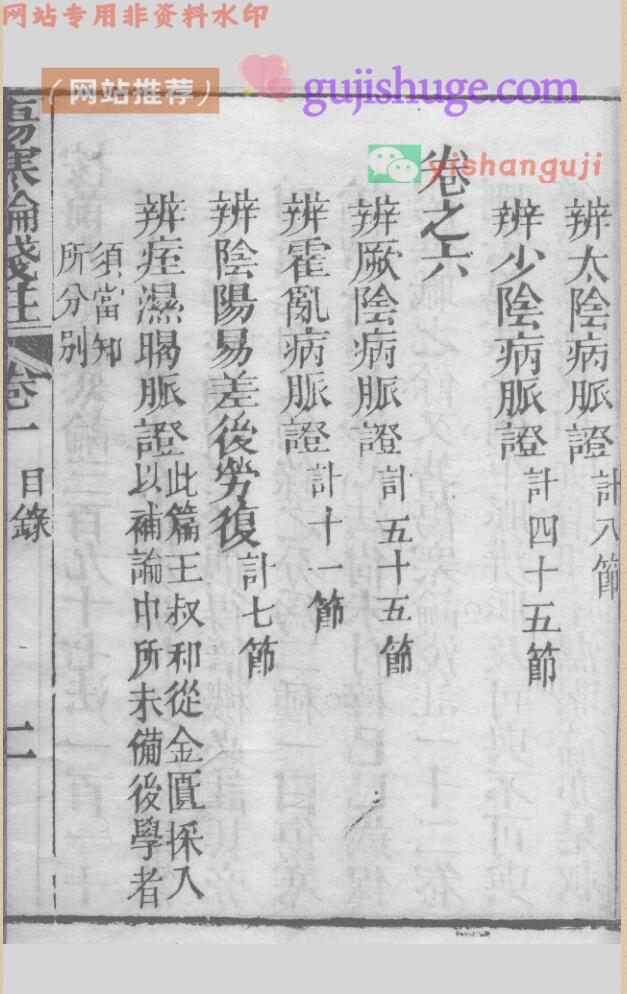 网站专用非资料水印
(网站推荐)
gujishuge.com
yishanguji
辨太陰病脈證計八節
辨少陰病脈證計四十五節
卷之六
辨厥陰病脈證計五十五節
辨霍亂病脈證計十一節
辨陰陽易差後勞復計七節
辨痓濕暍脈證此篇王叔和從金匱採入
以補論中所未備後學者
須當知
所分別
傷寒論淺註 卷一 目錄 二